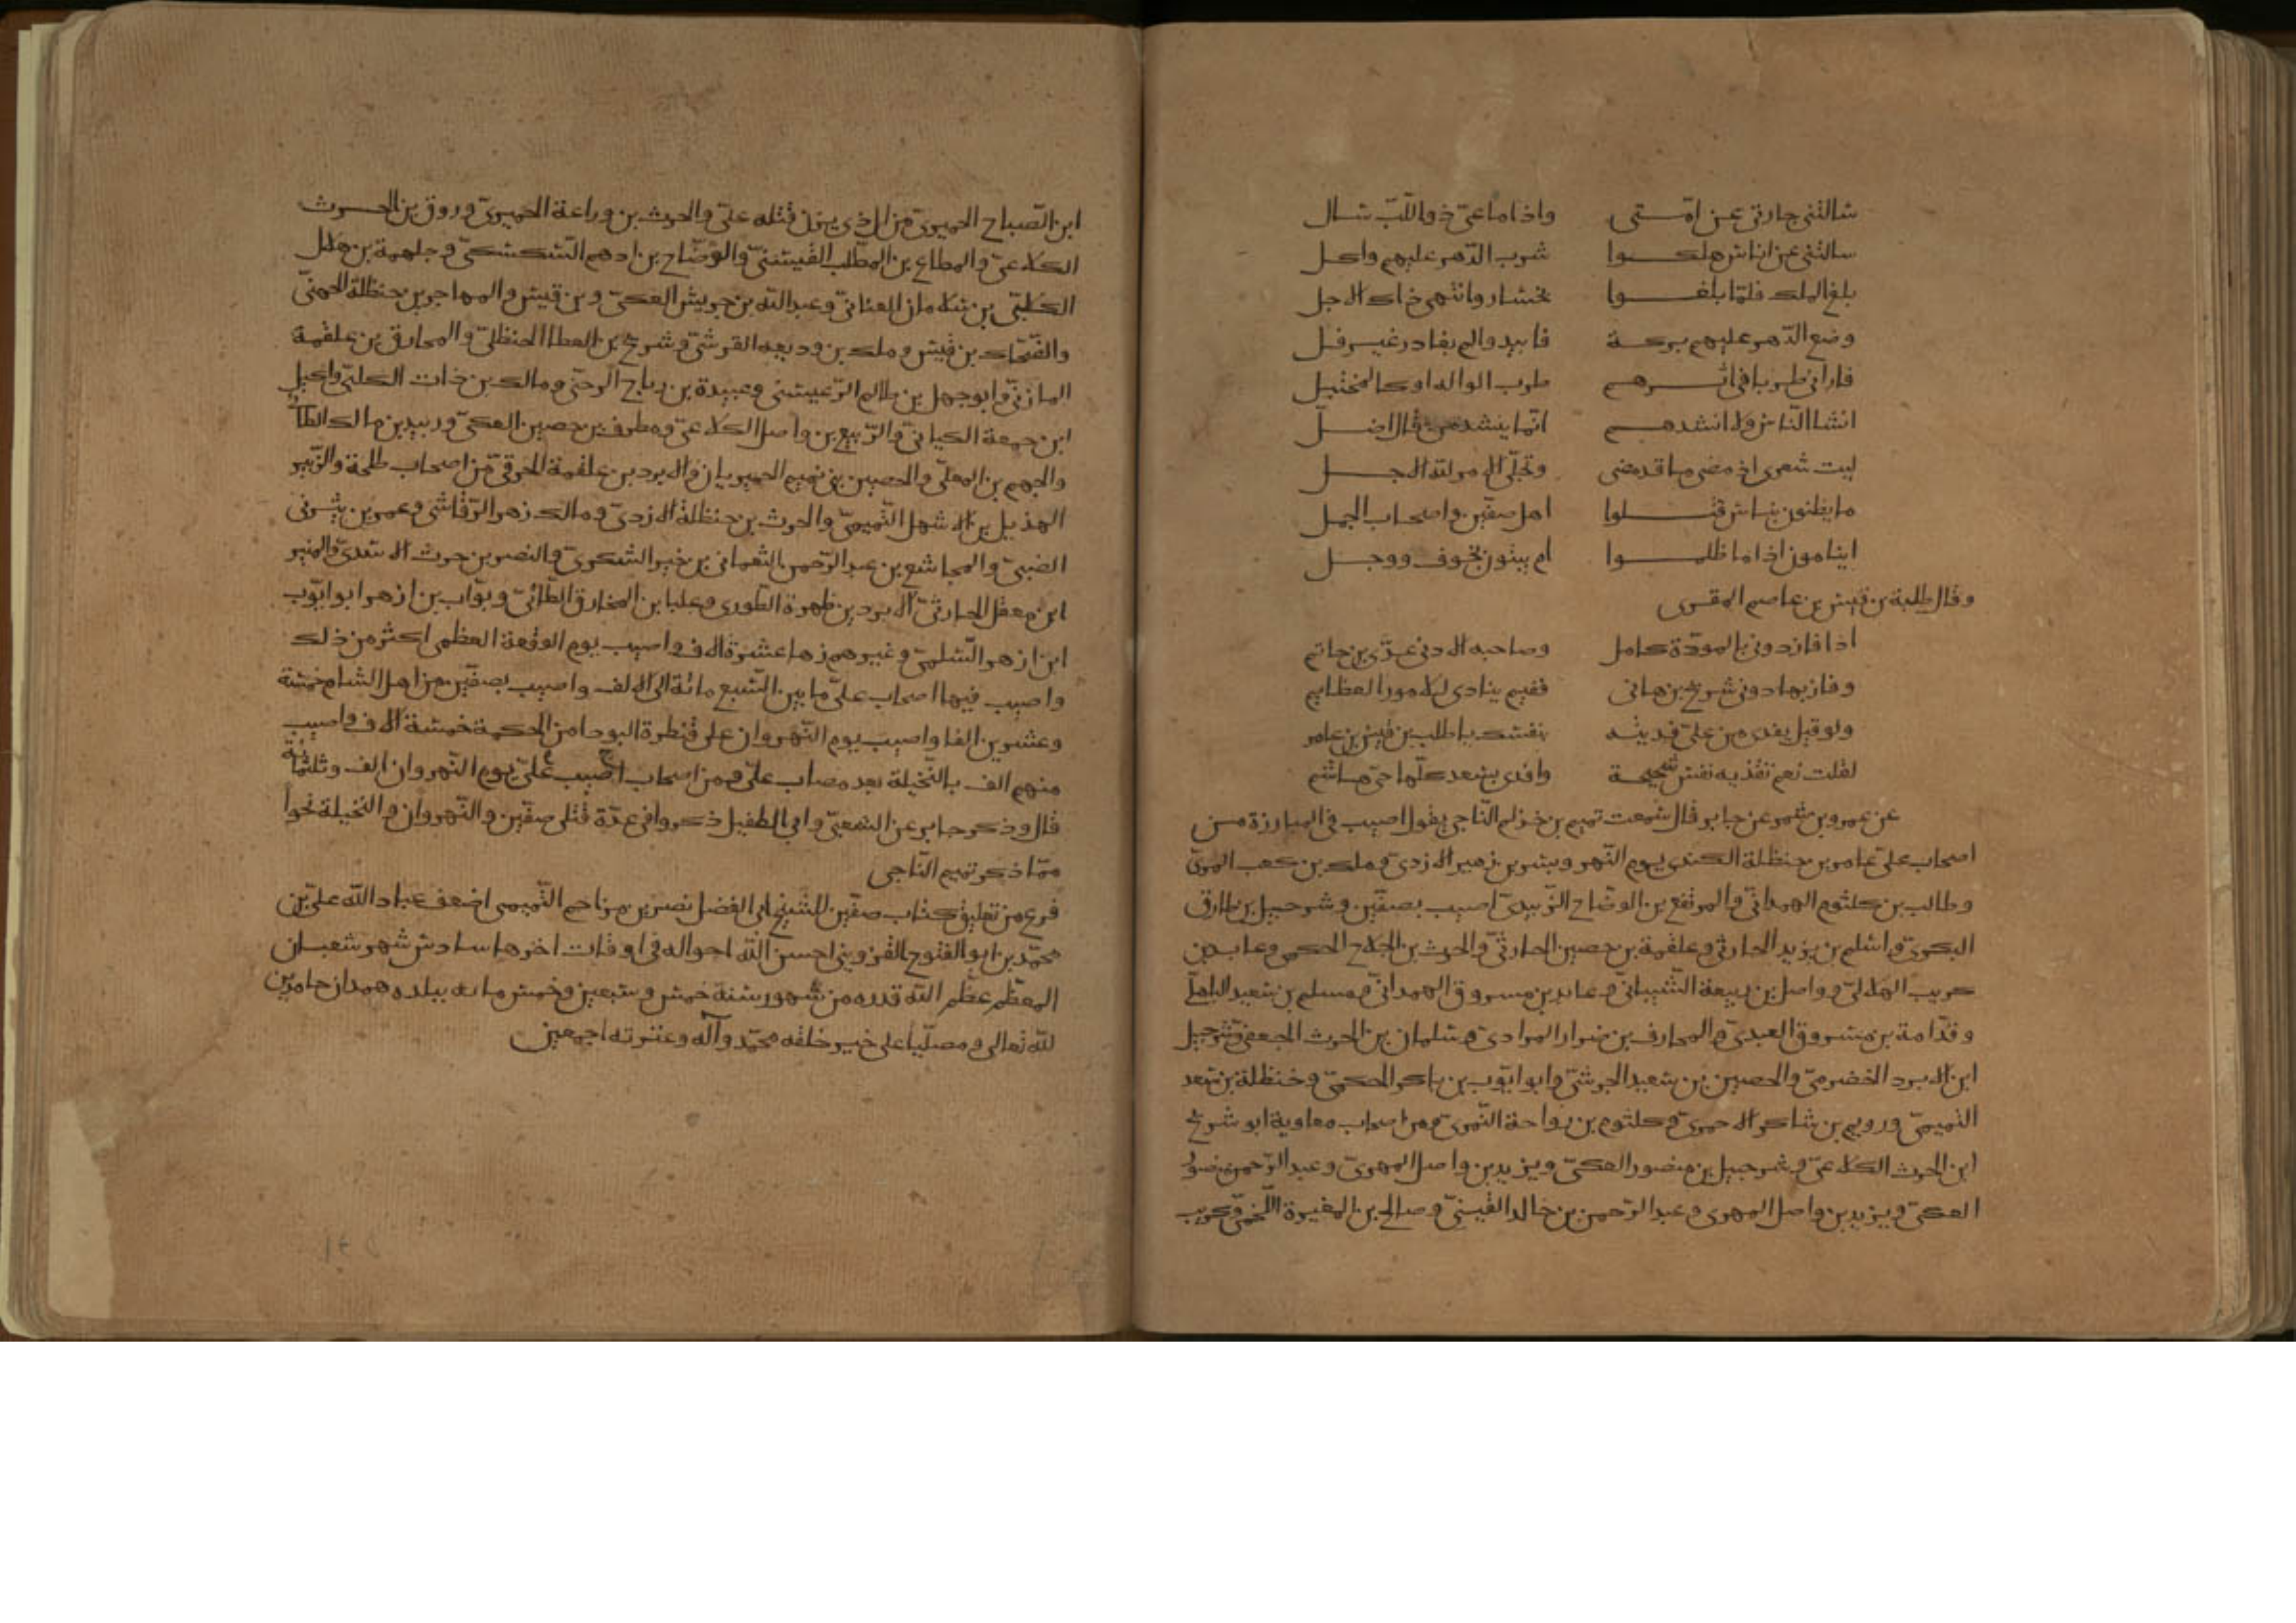 سالتنى جارتى عن امّتى واذا ما عىّ ذو اللبّ سال
سالتنى عن اناس هلكوا شرب الدّهر عليهم واكل
بلغ الملك فلمّا بلغوا بخسار وانتهى ذاك الاجل
وضع الدّهر عليهم بركة فابيدوا لم يغادر غير فل
فارانى طربا فى اثرهم طرب الواله او كالمختبل
انشد النّاس ولا انشدهم انّما ينشد من قال اضلّ
ليت شعرى اذ مضى ما قد مضى وتجلّى الامر لله الاجل
ما يظنون بناس قتلوا اهل صفّين واصحاب الجمل
اينامون اذا ما ظلموا ام يبيتون بخوف ووجل
وقال طلبة بن قيس بن عاصم المقرى
اذا فاز دونى بالمودّة كامل وصاحبه الادنى عدّى بن حاتم
وفاز بها دونى شريح بن هانى ففيم ينادى للامور العظايم
ولو قيل يفدى من علىّ فديته بنفسك يا طلب بن قيس بن عامر
لقلت نعم تفديه نفس شحيحة وافدى بسعد كلّها حىّ هاشم
عن عمرو بن شمر عن جابر قال سمعت تميم بن خزلم النّاجى يقول اصيب فى المبارزة من
اصحاب علىّ عامر بن حنظلة الكندى يوم النّهر وبشر بن زهير الازدىّ وملك بن كعب المرىّ
وطالب بن كلثوم الهمدانىّ والمرتفع بن الوضّاح الزّبيدىّ اصيب بصفّين وشرحبيل بن طارق
البكرىّ واسلم بن يزيد الحارثى وعلقمة بن حصين الحارثىّ والحرث بن الجلاح الحكمى وعابد بن
كريب الهلالىّ وواصل بن ربيعة الشّيبانىّ وعابد بن مسروق الهمدانىّ ومسلم بن سعيد الباهلىّ
وقدّامة بن مسروق العبدىّ والمحارف بن ضرار المرادىّ وسلمان بن الحرث الجعفى وشرحبيل
ابن الابرد الحضرمىّ والحصين بن سعيد الجرشىّ وابو ايّوب بن باكر الحكمىّ وحنظلة بن سعد
التميمىّ ورويم بن شاكر الاحمرىّ وكلثوم بن رواحة النّمرىّ ومن اصحاب معاوية ابو شريح
ابن الحرث الكلاعىّ وشرحبيل بن منصور العكىّ ويزيد بن واصل المهرىّ وعبد الرّحمن
العكىّ ويزيد بن واصل المهرى وعبد الرّحمن بن خالد القينىّ وصالح بن المغيرة اللّخمىّ وكريب
ابن الصّباح الحميرىّ من ال ذى يزن قتله علىّ والحرث بن وداعة الحميرىّ وروق بن الحرث
الكلاعىّ والمطاع بن المطّلب القينىّ والوضّاح بن ادهم السّكسكىّ وجلهمة بن هلال
الكلبىّ بن سلامان الغسانىّ وعبد الله بن جريش العكىّ وبن قيس والمهاجر بن حنظلة الجهنىّ
والضّحّاك بن قيس وملك بن وديعه القرشىّ وشريح بن العطا الحنظلىّ والمحارق بن علقمة
المازنىّ وابو جهل بن ظالم الرّعينىّ وعبيدة بن رباح الرحىّ ومالك بن ذات الكلبىّ واكيل
ابن جمعة الكنانىّ والرّبيع بن واصل الكلاعىّ ومطرف بن حصين العكىّ وربيد بن مالك الطا
والجهم بن المعلّى والحصين بنى تميم الحميريان والابرد بن علقمة الحرقىّ من اصحاب طلحة والزّبير
الهذيل بن الاشهل التّميمىّ والحرث بن حنظلة الازدىّ ومالك زهر الرّقاشى وعمر بن يثربى
الضبىّ والمجاشع بن عبد الرّحمن والنّعمانى بن خير اليشكرىّ والنضر بن حرث السّعدىّ والمنير
ابن معقل الحارثىّ الابرد بن طهرة الطّهورى وعلبا بن المخارق الطّائىّ وبوّاب بن ازهر ابو ايّوب
ابن ازهر السّلمىّ وغيرهم زها عشرة الاف واصيب يوم الوقعة العظمى اكثر من ذلك
واصيب فيها اصحاب علىّ ما بين السّبع مائة الى الالف واصيب بصفّين من اهل الشام خمسة
وعشرين الفا واصيب يوم النّهروان على قنطرة البودا من المحكمة خمسة الاف واصيب
منهم الف بالنّخيلة بعد مصاب علىّ ومن اصحاب اصيب علىّ يوم النّهروان الف وثلثمائة
قال وذكر جابر عن الشعبىّ وابى الطفيل ذكروا فى عدّة قتلى صفّين والنّهروان والنّخيلة نحوا
ممّا ذكر تميم النّاجى
فرغ من تعليق كتاب صفّين للشيخ ابى الفضل نصر بن مزاحم التّميمى اضعف عباد الله علىّ بن
محمّد بن ابو الفتوح القزوينى احسن الله احواله فى اوقات اخرها سادس شهر شعبان
المعظّم عظّم الله قدره من شهور سنة خمس وسبعين وخمس مايه ببلده همدان حامدين
لله تعالى ومصلّيا على خير خلقه محمّد وآله وعترته اجمعين